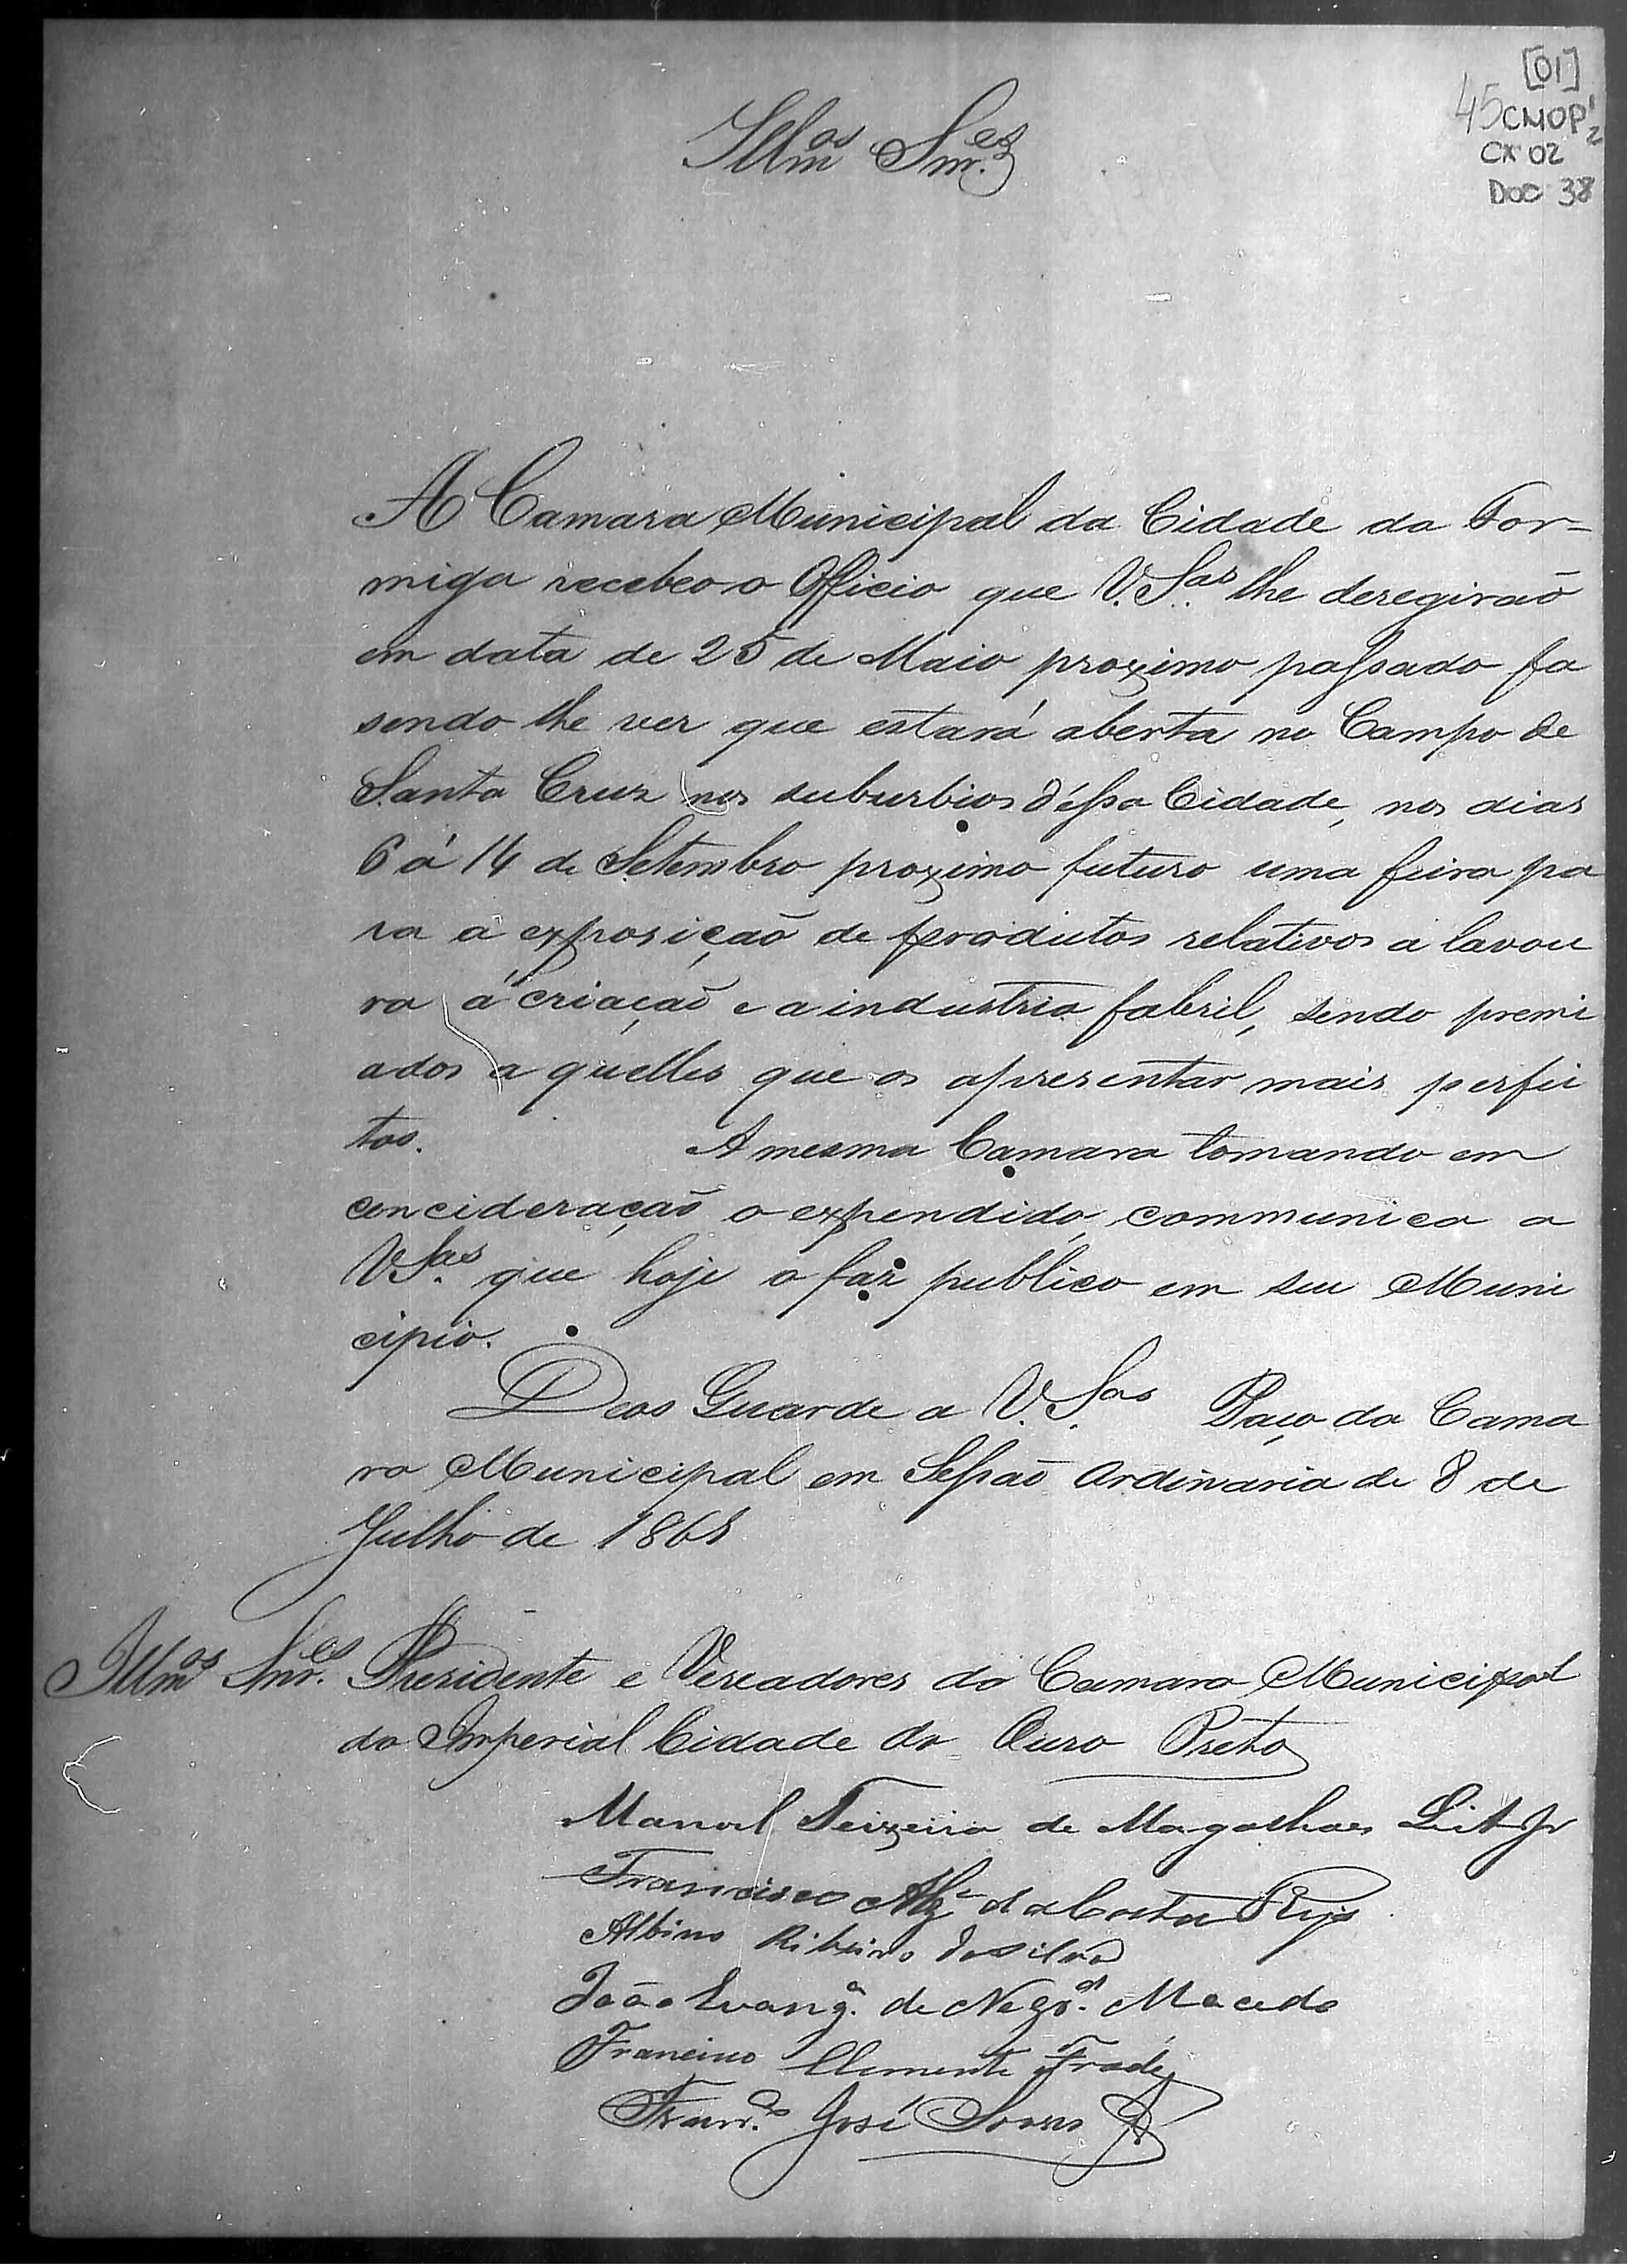 [01]
45 CMOP 1/2
CX 02
DOC 38
Illmos Snres
A Camara Municipal da Cidade da For-
miga recebeo o Officio que V. Sas lhe deregirão
em data de 25 de Maio proximo passado fa
sendo lhe ver que estará aberta no Campo de
Santa Cruz nos suburbios d'éssa Cidade, nos dias
6 á 14 de Setembro proximo futuro uma feira pa
ra a exposição de produtos relativos a lavou
ra á criação e a industria fabril, sendo premi
ados a quelles que os apresentar mais perfei
tos. A mesma Camara tomando em
concideração o expendido, communica a
V Sas que hoje o faz publico em seu Muni
cipio.
Deos Guarde a V. Sas Paço da Cama
ra Municipal em Sessão Ordinaria de 8 de
Julho de 186
Illmos Snres Presidente e Vereadores da Camara Municipal
da Imperial Cidade do Ouro Preto
Manoel Teixeira de Magalhaes Leite Jr
Francisco Alz da Costa
Albino Ribeiro da Silva
João Evanga. de Negros. Macedo
Francisco Clemente Frade
Franco. José Soares